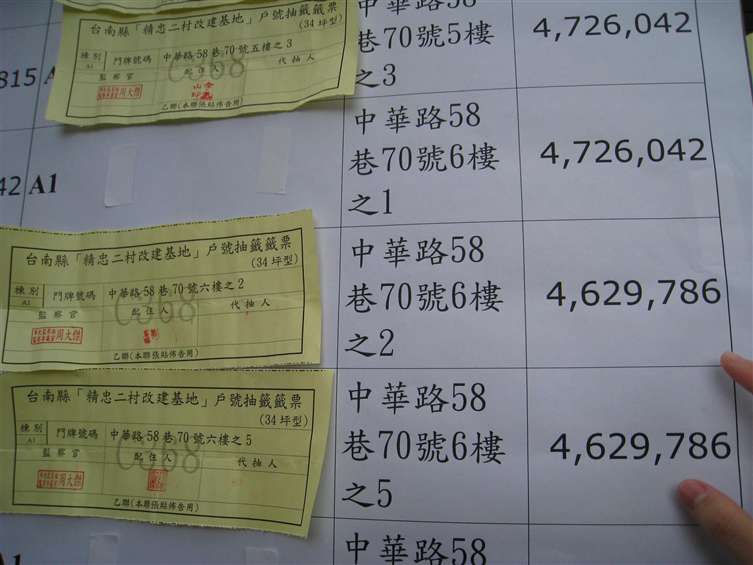 台南縣「精忠二村改建基地」戶號抽籤籤票
(34坪型)
種別 門牌號碼 中華路58巷70號五樓之3
A1
監察官 配住人 代抽人
周大傑
乙聯(本聯張貼佈告用)
815 A
中華路58
巷70號5樓
之3
4,726,042
42 A1
中華路58
巷70號6樓
之1
4,726,042
台南縣「精忠二村改建基地」戶號抽籤籤票
(34坪型)
種別 門牌號碼 中華路58巷70號六樓之2
A1
監察官 配住人 代抽人
周大傑
乙聯(本聯張貼佈告用)
中華路58
巷70號6樓
之2
4,629,786
台南縣「精忠二村改建基地」戶號抽籤籤票
(34坪型)
種別 門牌號碼 中華路58巷70號六樓之5
A1
監察官 配住人 代抽人
周大傑
乙聯(本聯張貼佈告用)
中華路58
巷70號6樓
之5
4,629,786
A1
中華路58